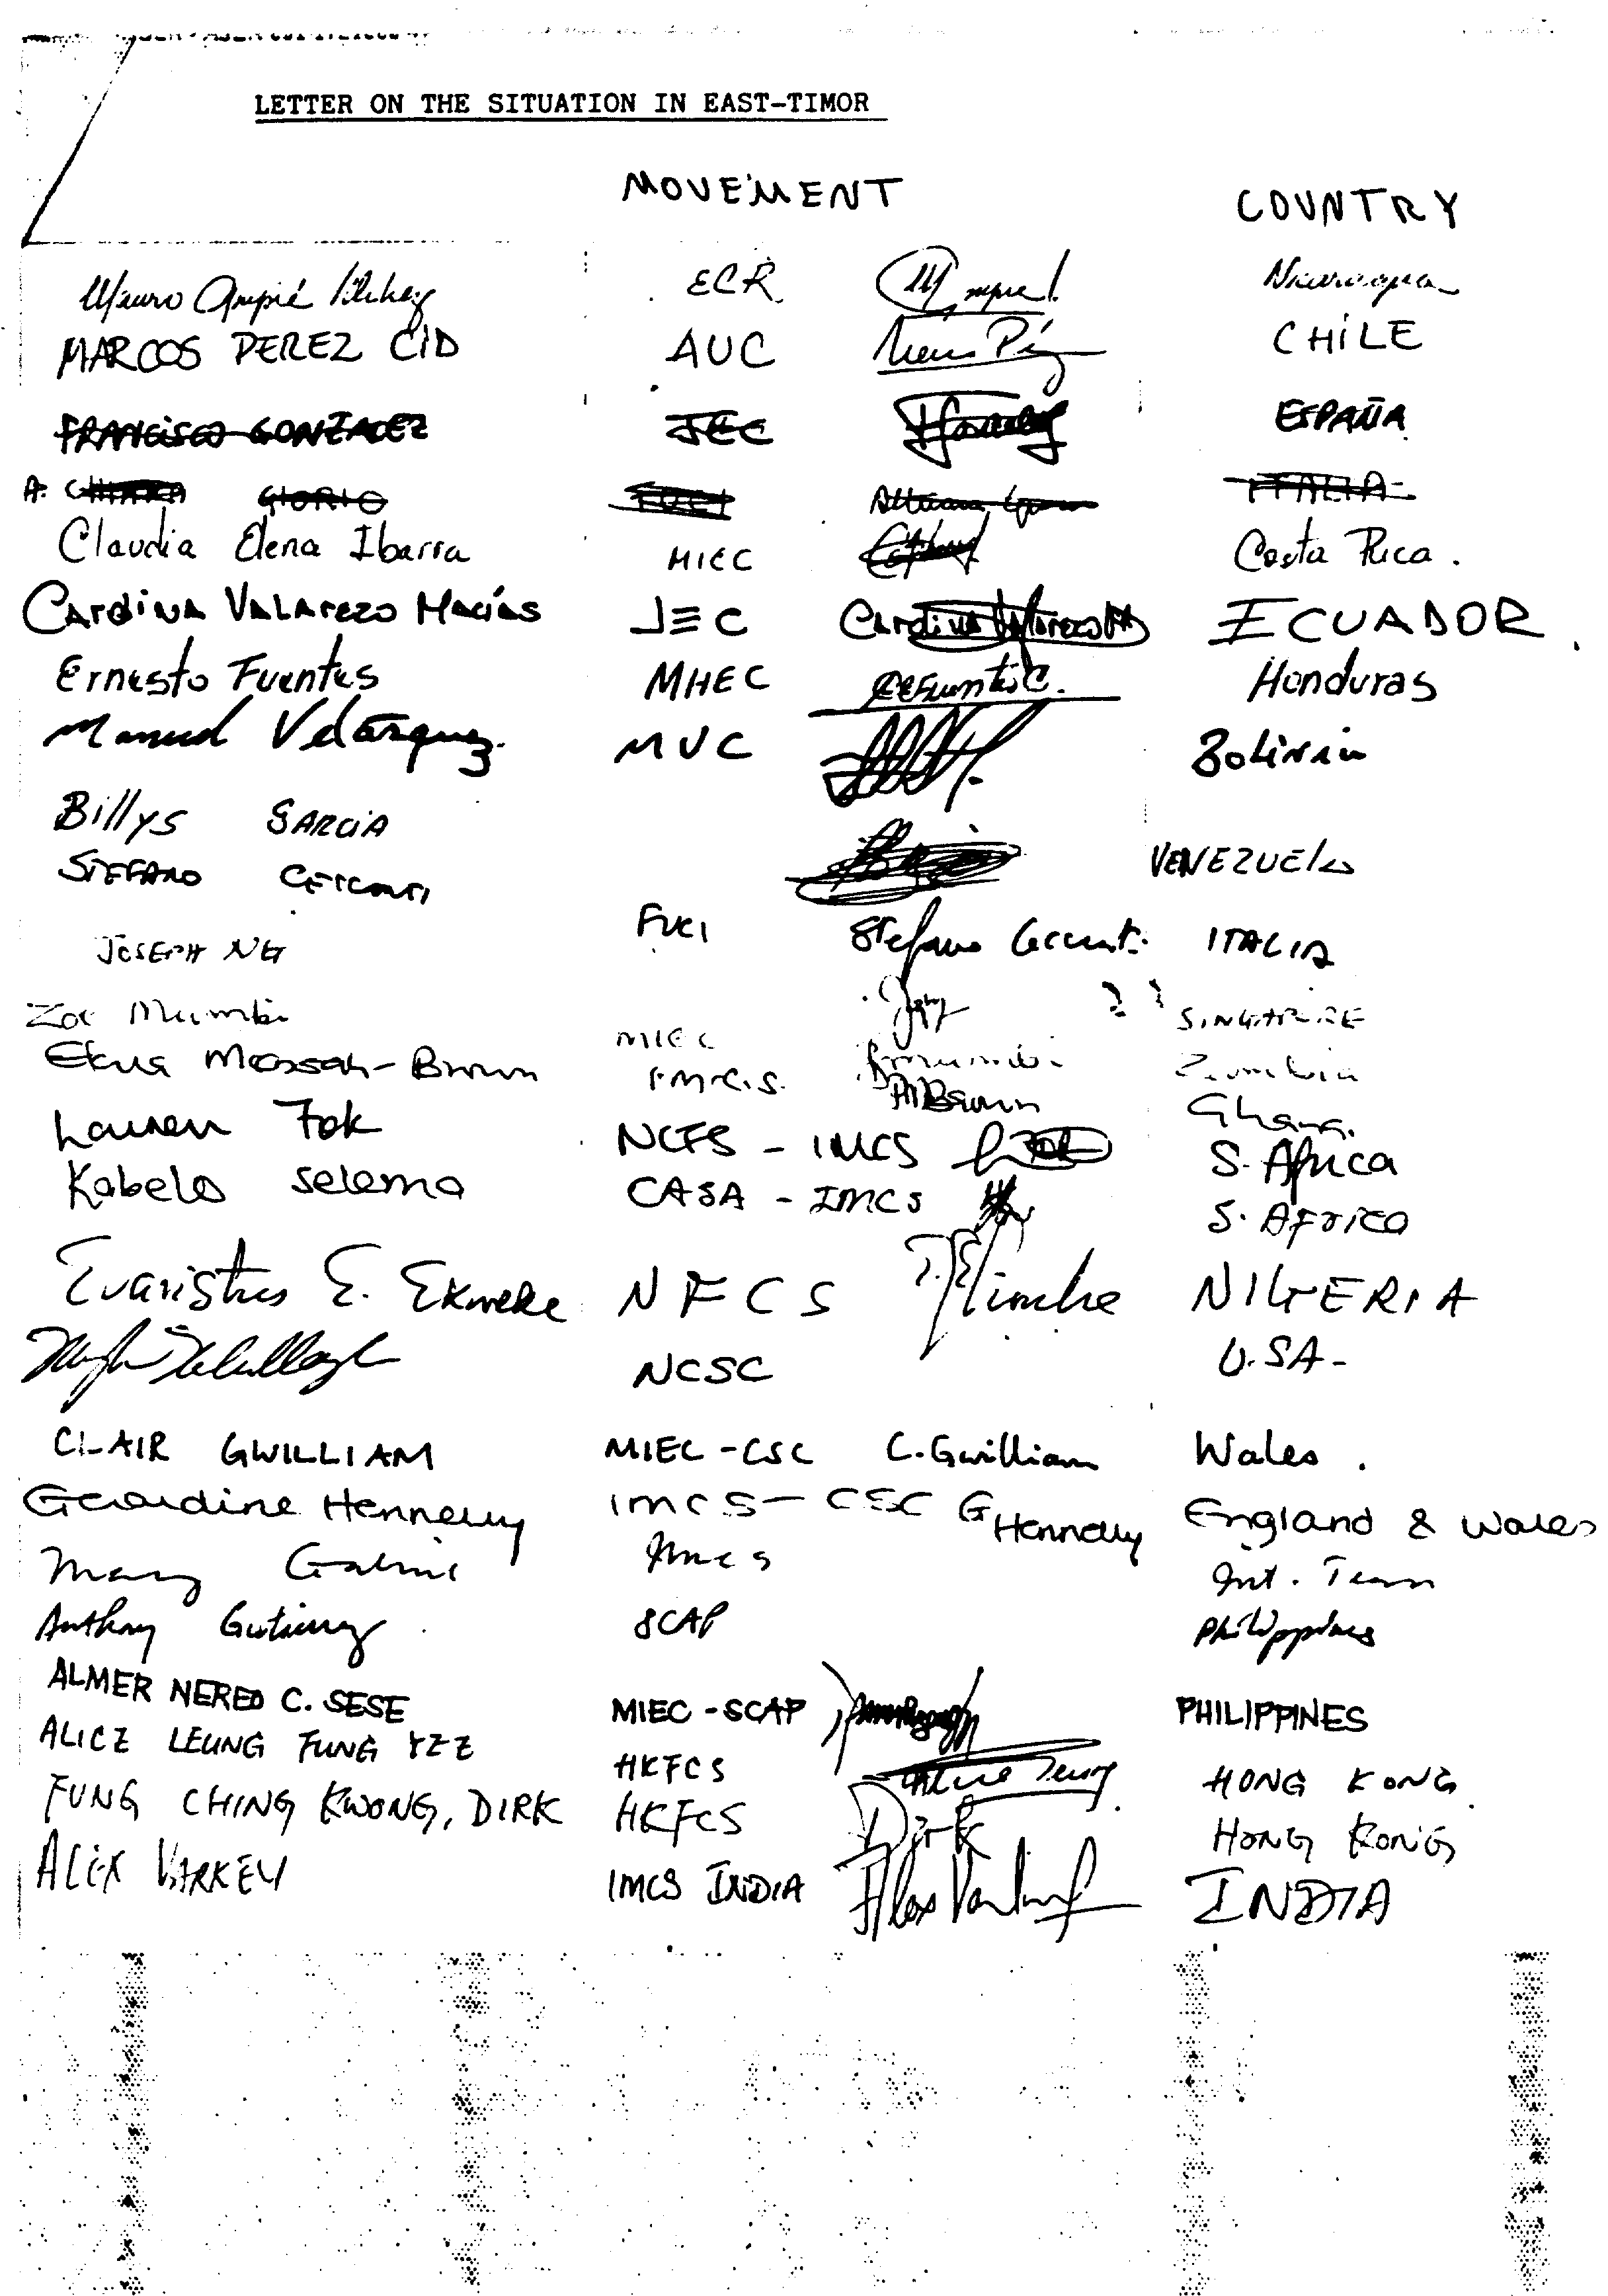 LETTER ON THE SITUATION IN EAST-TIMOR
MOVEMENT COUNTRY
Mauro Ampié ECR Nicaragua
MARCOS PEREZ CID AUC CHILE
FRANCISCO GONZALEZ JEC ESPAÑA
A. CHIARA GIORIO FUCI ITALIA
Claudia Elena Ibarra MIEC Costa Rica.
Carolina Valarezo Macías JEC Carolina Valarezo M ECUADOR.
Ernesto Fuentes MHEC Honduras
Manuel Velásquez. MUC Bolivia
Billys GARCIA
VENEZUELA
STEFANO
FUCI Stefano ITALIA
JOSEPH NG
SINGAPORE
Zoe Mumbi
MIEC Zambia
Ekua Moessah-Brown IMCS. Ghana.
Lauren Fok NCFS - IMCS S. Africa
Kabelo Selema CASA - IMCS S. Africa
Evaristus E. Ekweke NFCS NIGERIA
NCSC U.SA-
CLAIR GWILLIAM MIEC-CSC C. Gwilliam Wales.
Geraldine Hennelly IMCS - CSC G Hennelly England & Wales
Mary IMCS Int. Team
Anthony Gutierrez SCAP Philippines
ALMER NERED C. SESE MIEC-SCAP PHILIPPINES
ALICE LEUNG FUNG YEE HKFCS Alice Leung HONG KONG
FUNG CHING KWONG, DIRK HKFCS Dirk HONG KONG
ALEX VARKEY IMCS INDIA Alex Varkey INDIA